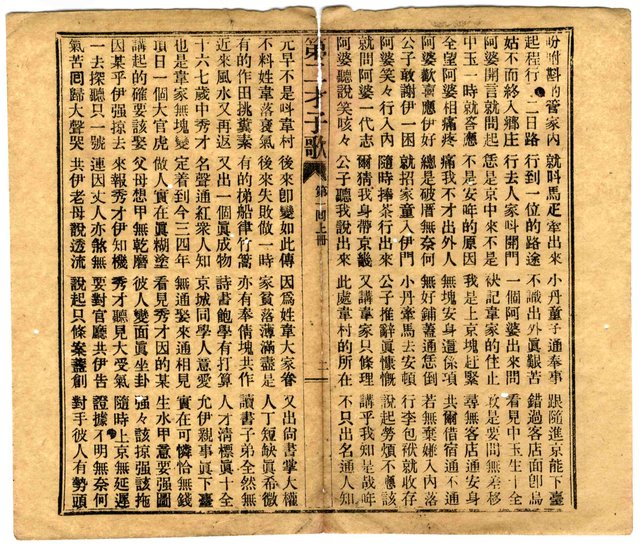 吩咐斟的管家內 就叫馬疋牽出來 小丹童子通奉事 跟隨進京能下臺
起程行〻二日路 行到一位的路途 不識出外眞艱苦 錯過客店面卽烏
姑不而終入鄉庄 行去人家叫開門 一個阿婆出來問 看見中玉生十全
阿婆開言就問起 恁是京中來不是 袂記韋家的住止 敢是要問無差移
中玉一時就答應 不是安哖的原因 我是上京塊赶緊 尋無客店通安身
全望阿婆相痛疼 痛我不才出外人 無塊安身還係項 共爾借宿通不通
阿婆歡喜應伊好 總是破厝無奈何 無好鋪蓋通恁倒 若無棄嫌入內落
公子敢謝伊一囷 就招家童入伊門 小丹牽馬去安頓 行李包袱就收存
阿婆笑〻行入內 隨時捧茶行出來 公子推辭眞慷慨 說起勞煩不應該
就問阿婆一代志 爾猜我身帶京畿 又講韋家只條理 講乎我知是哉哖
阿婆聽說笑咳〻 公子聽我說出來 此處韋村的所在 不只出名通人知
第二才子歌 第一回上冊 二
元早不是叫韋村 後來卽變如此傳 因爲姓韋大家眷 又出尙書掌大權
不料姓韋落衰氣 後來失敗做一時 家貧落薄滿盡是 人丁短缺眞希微
有的作田挑糞素 有的梯船律竹篙 亦有奉倩塊共作 讀書子弟全然無
近來風水又再返 又出一個眞成物 詩書飽學有打算 人才清標眞十全
十六七歲中秀才 名聲通紅衆人知 京城同學人意愛 允伊親事眞下臺
也是韋家無塊變 定着到今三四年 無通娶來通相見 實在可憐恰無錢
頂日一個大官虎 做人實在眞糊塗 看見秀才因的某 生水甲意要强圖
講起的確要該娶 父母想甲無乾磨 彼人變面眞坐卦 强〻該掠强該拖
因某乎伊强掠去 來報秀才伊知機 秀才聽見大受氣 隨時上京無延遲
一去探聽只一號 連因丈人亦煞無 要對官廳共伊告 證據不明無奈何
氣苦囘歸大聲哭 共伊老母說透流 說起只條案盡創 對手彼人有勢頭